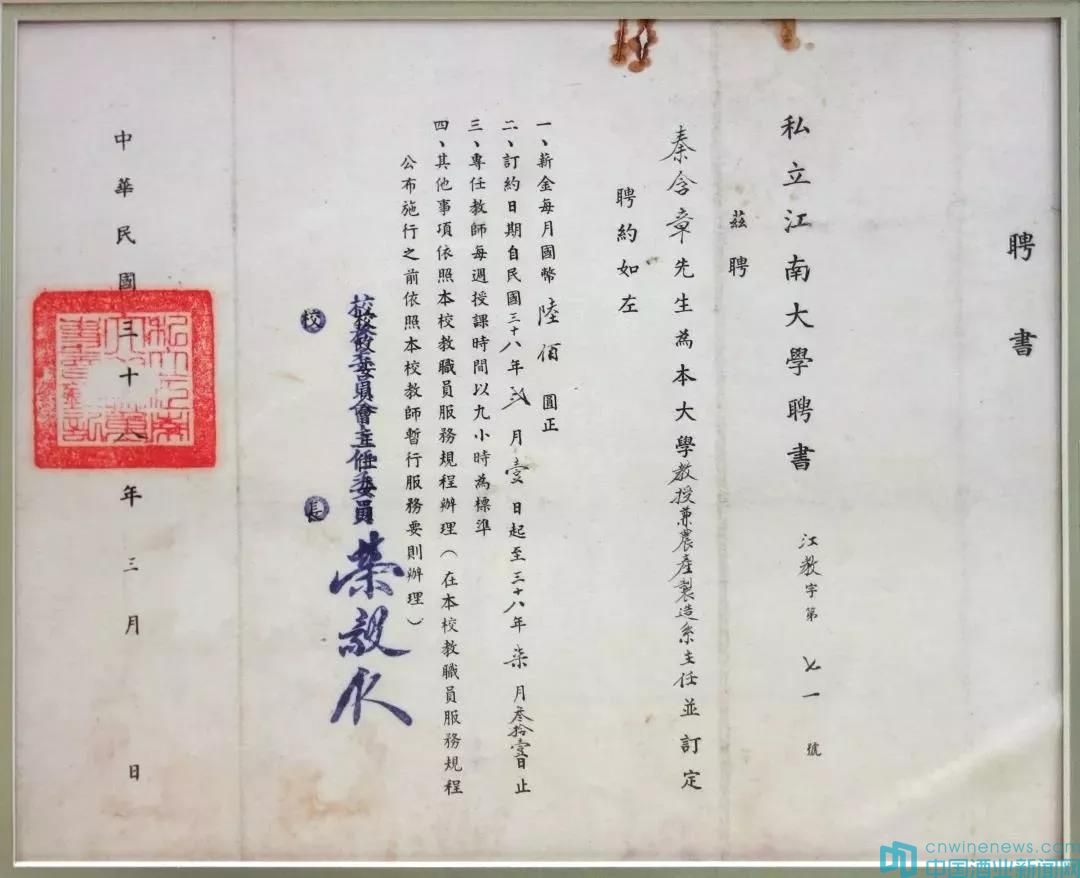 聘書
私立江南大學聘書 江教字第七一號
茲聘
秦含章先生為本大學教授兼農產製造系主任並訂定
聘約如左
一、薪金每月國幣陸佰圓正
二、訂約日期自民國三十八年貳月壹日起至三十八年柒月叁拾壹日止
三、專任教師每週授課時間以九小時為標準
四、其他事項依照本校教職員服務規程辦理（在本校教職員服務規程
公布施行之前依照本校教師暫行服務要則辦理）
校務委員會主任委員 榮毅仁
校長
中華民國三十八年三月 日
cnwinenews.com
中国酒业新闻网